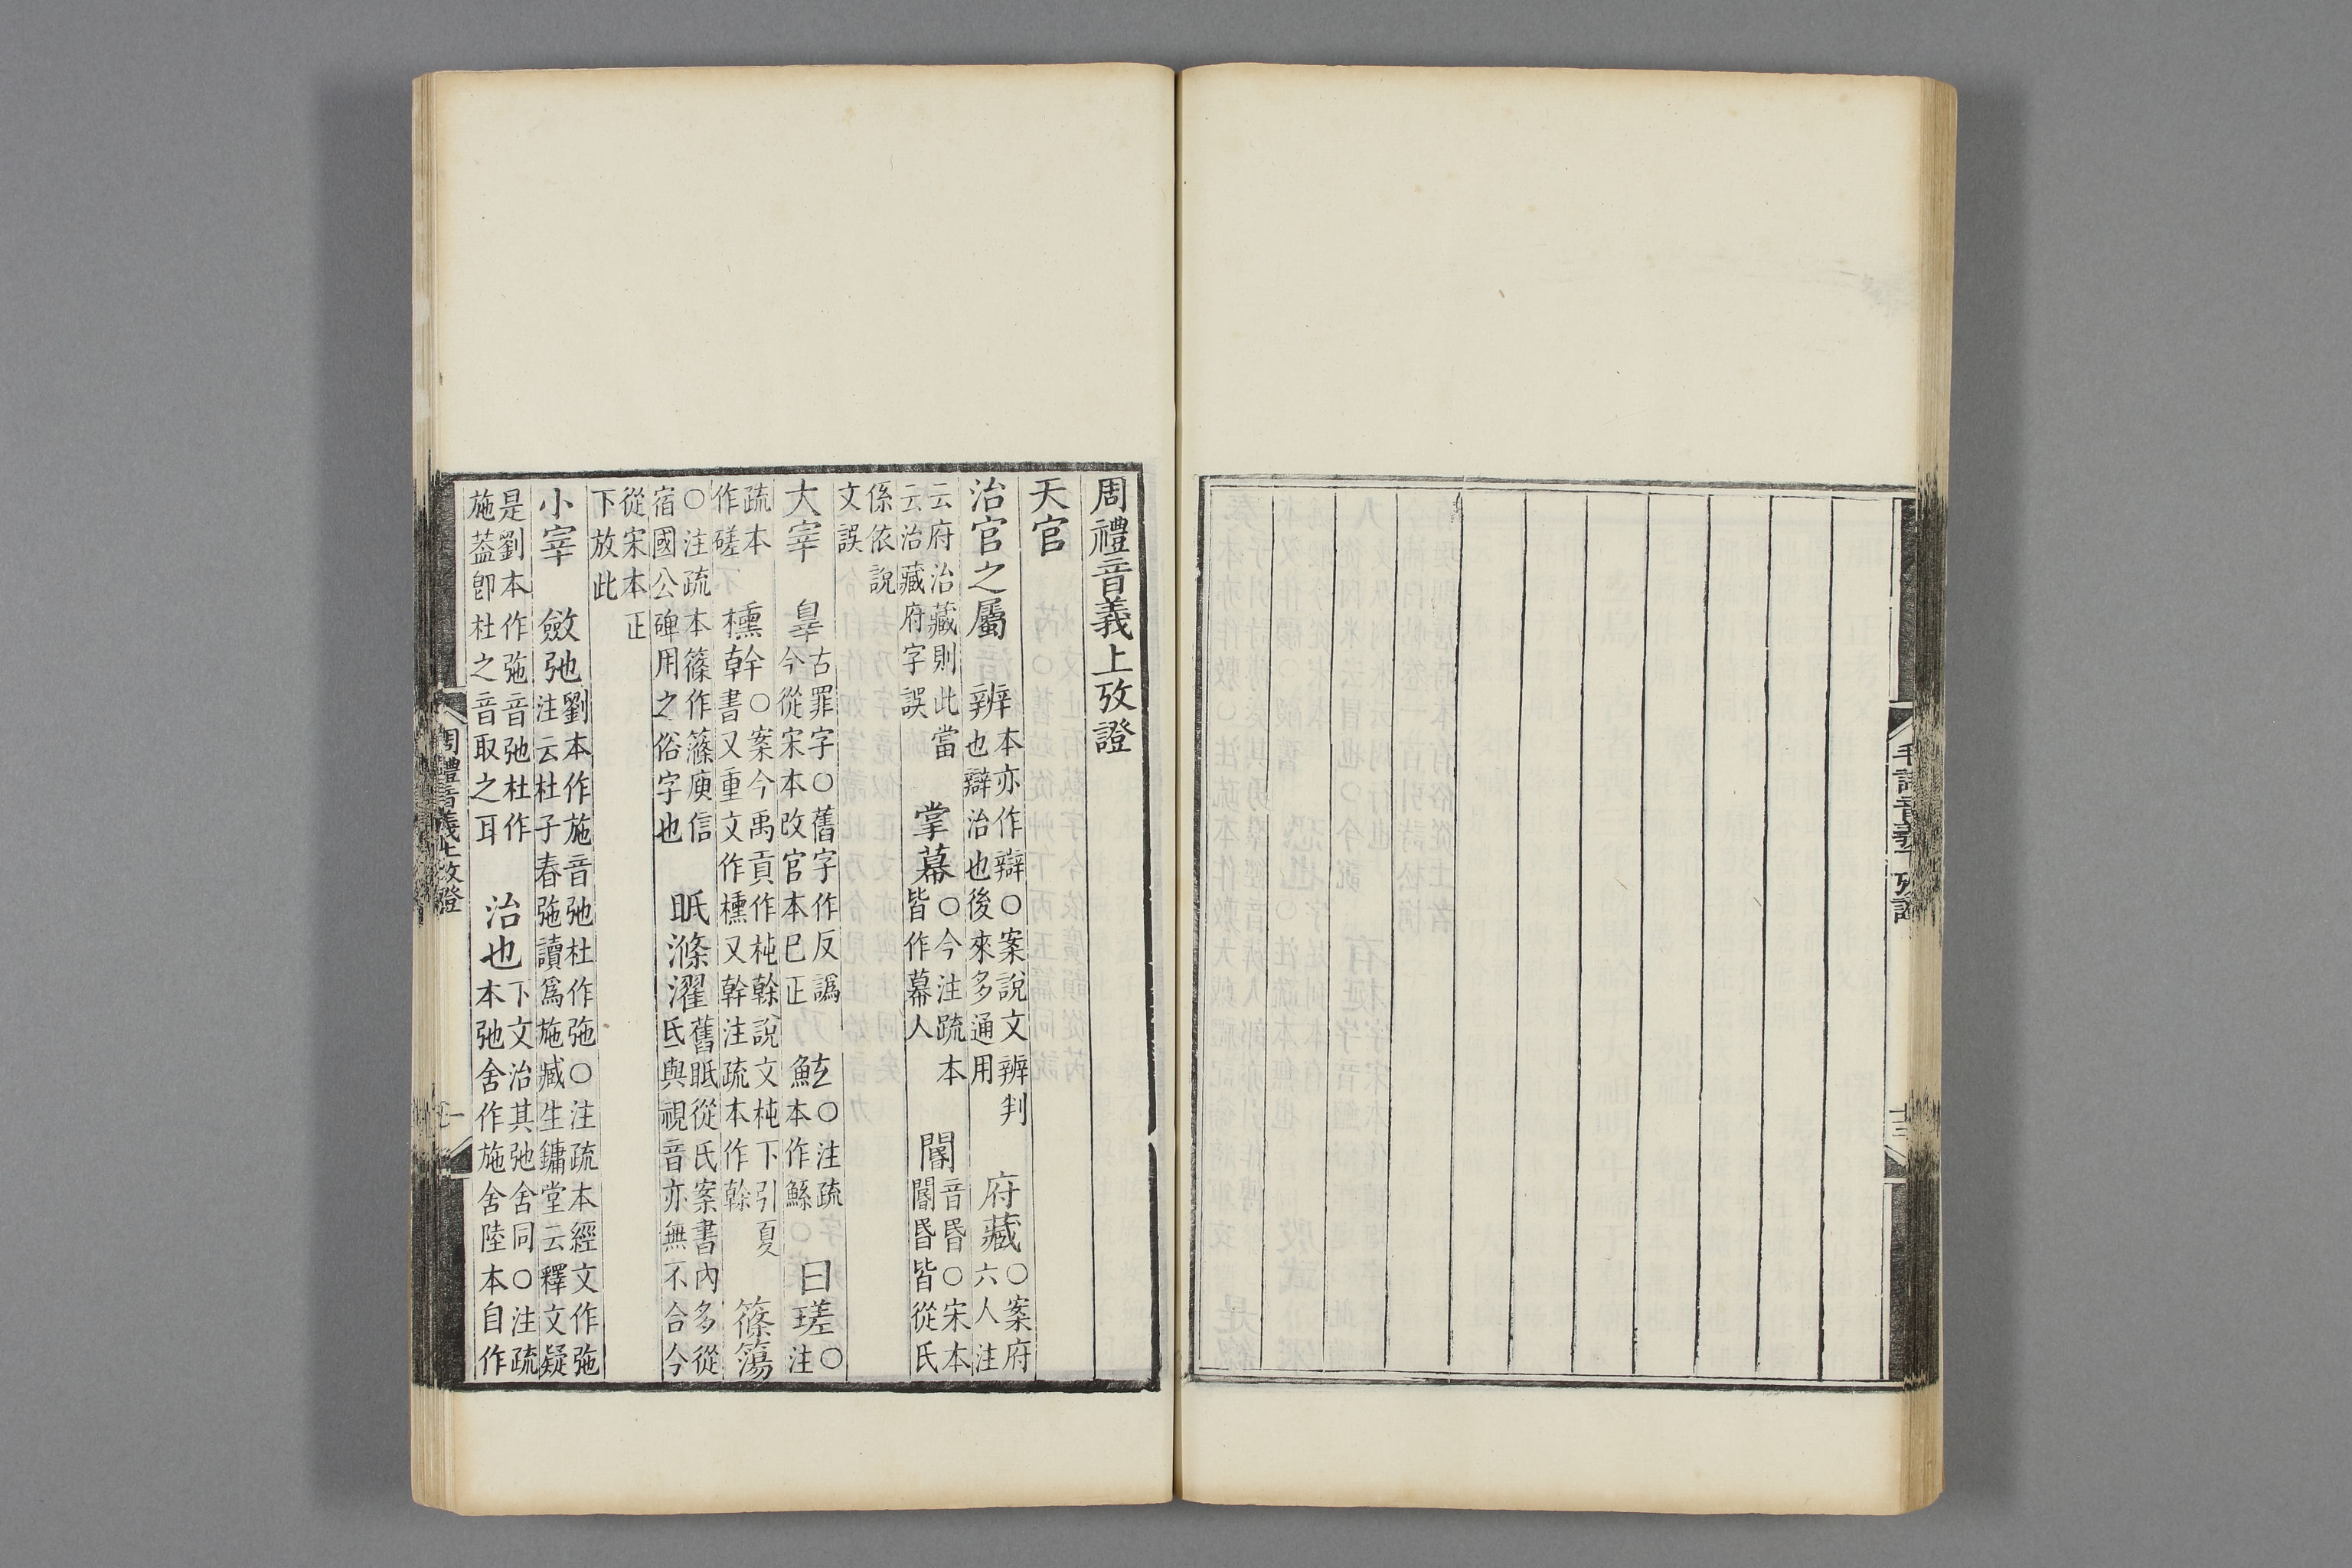 毛詩音義下攷證
周禮音義上攷證
天官
治官之屬　辨本亦作辯○案說文辨判也辯治也後來多通用　府藏○案府六人注
云府治藏則此當云治藏府字誤　掌幕○今注疏本皆作幕人　閽音昬○宋本閽昬皆從氏
係依說文誤
大宰　辠古罪字○舊字作反譌今從宋本改官本巳正　鮌○注疏本作鯀　曰瑳○注
疏本作磋　櫄幹○案今禹貢作杶榦說文杶下引夏書又重文作櫄又幹注疏本作榦　篠簜
○注疏本篠作蓧庾信宿國公碑用之俗字也　眂滌濯舊眂從氏案書內多從氐與視音亦無不合今
從宋本正下放此
小宰　斂弛劉本作施音弛杜作㢮○注疏本經文作㢮注云杜子春㢮讀爲施臧生鏞堂云釋文疑
是劉本作㢮音弛杜作施葢卽杜之音取之耳　治也下文治其弛舍同○注疏本弛舍作施舍陸本自作
周禮音義上攷證
一